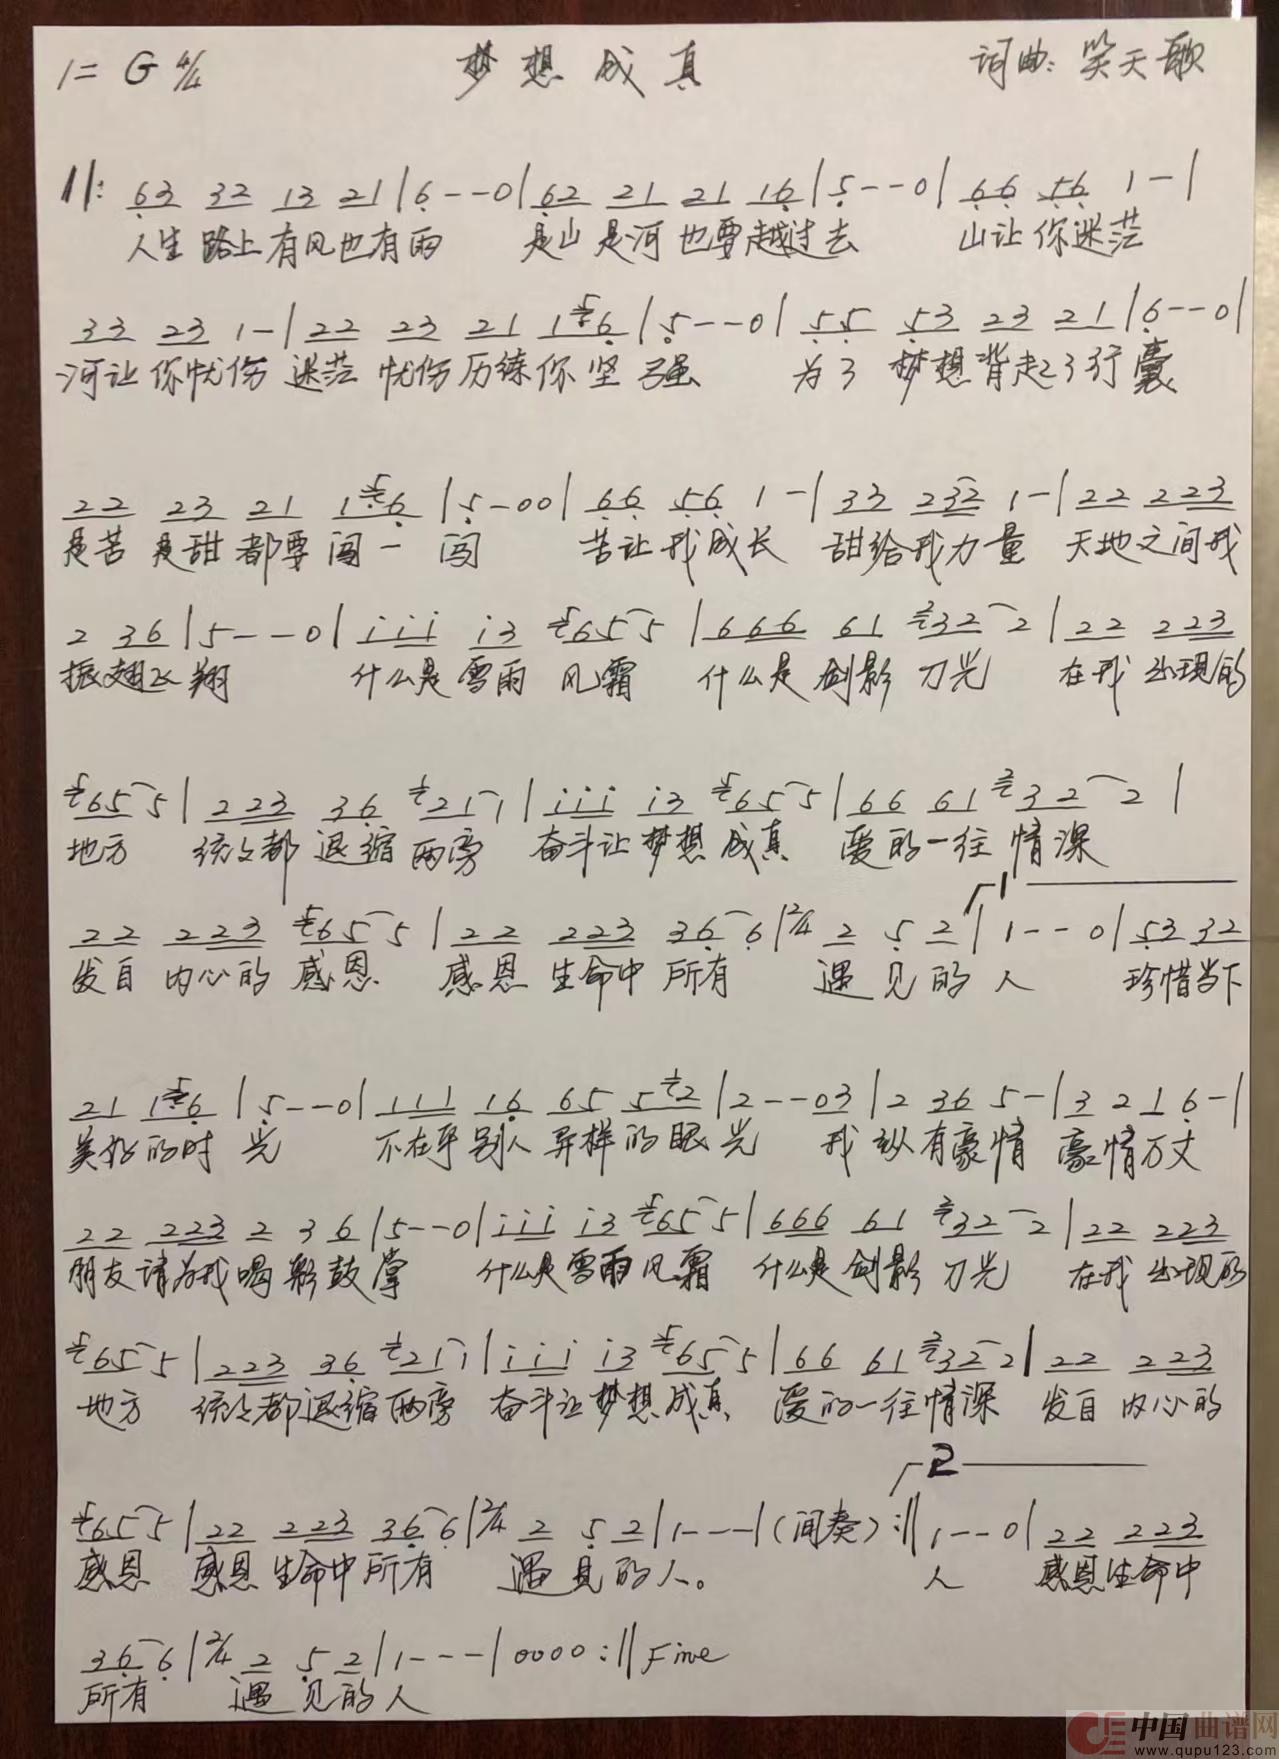 1=G 4/4 梦想成真 词曲:笑天歌
||: 63 32 13 21 | 6--0 | 62 21 21 16 | 5--0 | 66 56 1- |
人生 路上 有风也有雨 是山 是河 也要越过去 山让 你迷茫
33 23 1- | 22 23 21 1 6 | 5--0 | 55 53 23 21 | 6--0 |
河让 你忧伤 迷茫 忧伤历练你坚强 为了 梦想背起了行囊
22 23 21 1 6 | 5-00 | 66 56 1- | 33 232 1- | 22 223
是苦 是甜 都要 闯一 闯 苦让 我成长 甜给我力量 天地之间我
2 36 | 5--0 | iii i3 655 | 666 61 322 | 22 223
振翅飞翔 什么是雪雨 风霜 什么是 剑影 刀光 在我 出现的
655 | 223 36 211 | iii i3 655 | 66 61 322 |
地方 统统都 退缩 两旁 奋斗让梦想 成真 爱的一往 情深
1
22 223 655 | 22 223 366 | 2/4 2 5 2 | 1--0 | 53 32
发自 内心的 感恩 感恩 生命中 所有 遇见的人 珍惜当下
21 1 6 | 5--0 | 111 16 65 5 2 | 2--03 | 2 36 5- | 3 2 1 6- |
美好的时 光 不在乎 别人 异样的眼 光 我 纵有豪情 豪情万丈
22 223 2 3 6 | 5--0 | iii i3 655 | 666 61 322 | 22 223
朋友 请为我 喝彩鼓掌 什么是雪雨风霜 什么是剑影 刀光 在我 出现的
655 | 223 36 211 | iii i3 655 | 66 61 322 | 22 223
地方 统统都退缩 两旁 奋斗让梦想成真 爱的一往情深 发自 内心的
2
655 | 22 223 366 | 2/4 2 5 2 | 1--- | (间奏) :|| 1--0 | 22 223
感恩 感恩 生命中所有 遇见的人。 人 感恩生命中
366 | 2/4 2 5 2 | 1--- | 0000 :|| Fine
所有 遇见的人
中国曲谱网
www.qupu123.com